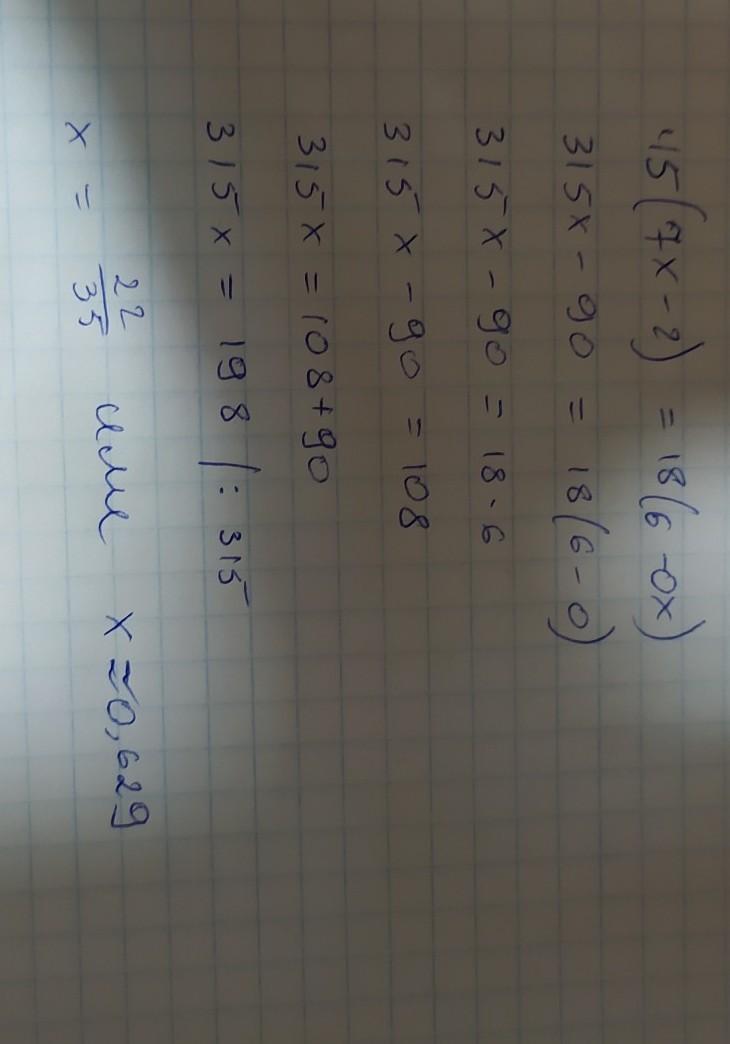 45(7x-2) = 18(6-0x)
315x - 90 = 18(6-0)
315x - 90 = 18·6
315x - 90 = 108
315x = 108+90
315x = 198 /: 315
x = 22/35 или x≈0,629